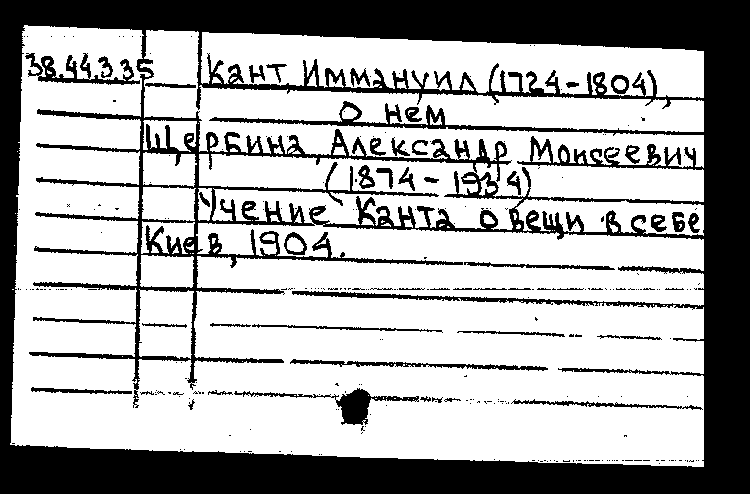 38.44.3.35 Кант, Иммануил (1724-1804),
о нем
Щербина, Александр Моисеевич
(1874-1934)
Учение Канта о вещи в себе
Киев, 1904.